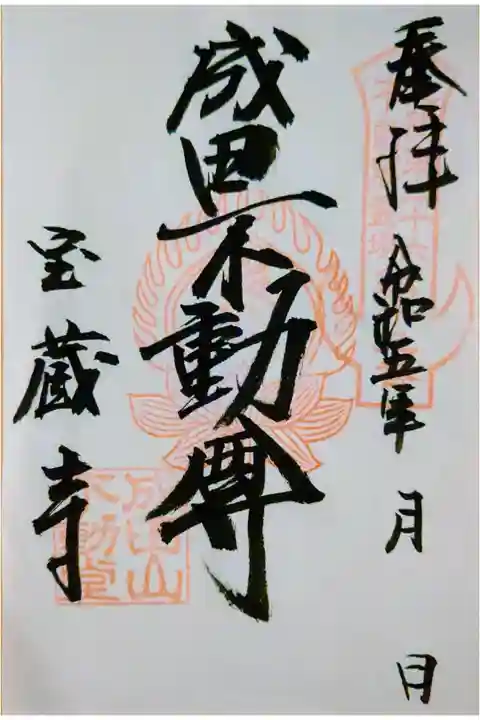 奉拝 令和五年 月 日
成田不動尊
宝蔵寺
成田山
不動堂